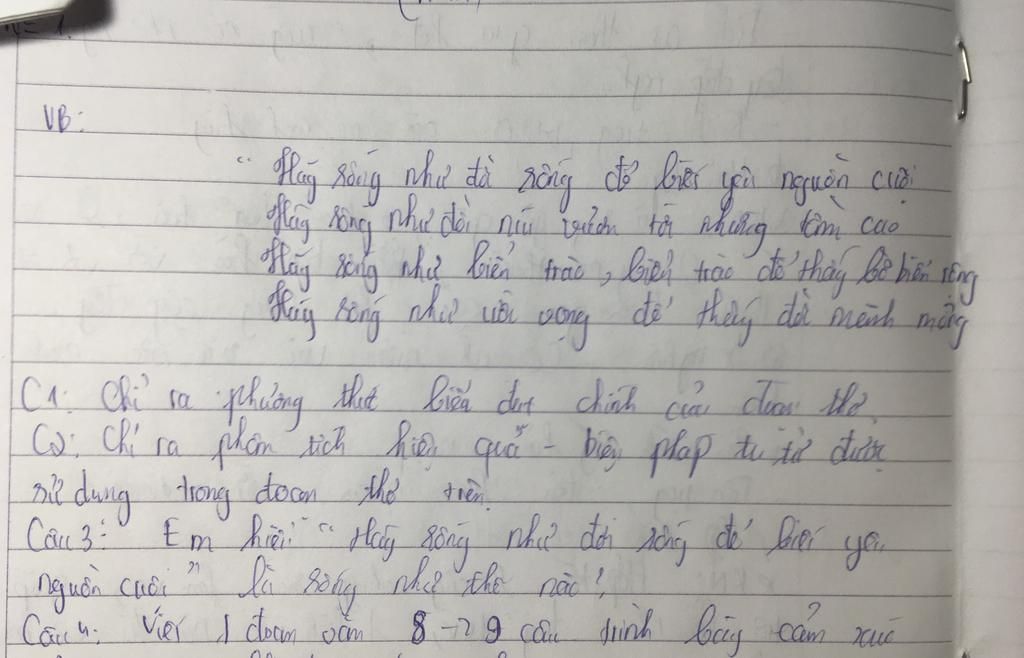 VB:
"Hãy sống như đời sống để biết yêu nguồn cuội
Hãy sống như đồi núi vươn tới những tầm cao
Hãy sống như biển trào, biển trào để thấy bờ biển rộng
Hãy sống như ước vọng để thấy đời mênh mông
C1: Chỉ ra phương thức biểu đạt chính của đoạn thơ
C2: Chỉ ra phân tích hiệu quả - biện pháp tu từ được
sử dụng trong đoạn thơ trên.
Câu 3: Em hiểu "Hãy sống như đời sống để biết yêu
nguồn cuội" là sống như thế nào?
Câu 4: Viết 1 đoạn văn 8 → 9 câu trình bày cảm xúc